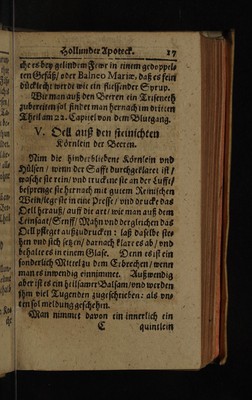 Hollunder Apoteck. 17
che es bey gelindem Fewr in einem gedoppel-
ten Gefäß/ oder Balneo Mariæ, daß es fein
dücklecht werde wie ein fliessender Syrup.
Wie man auß den Beeren ein Triseneth
zubereiten sol findet man hernach im dritten
Theil am 22. Capitel von dem Blutgang.
V. Oell auß den steinichten
Körnlein der Beeren.
Nim die hinderbliebene Körnlein vnd
Hülsen / wenn der Safft durchgeklaret ist /
wasche sie rein / vnd truckene sie an der Lufft /
besprenge sie hernach mit gutem Reinischen
Wein / lege sie in eine Presse / vnd drucke das
Oell herauß / auff die art / wie man auß dem
Leinsaat / Senff / Mahn vnd dergleichen das
Oell pfleget außzudrucken : laß daßelbe ste-
hen vnd sich setzen / darnach klare es ab / vnd
behalte es in einem Glase. Denn es ist ein
sonderlich Mittel zu dem Erbrechen / wenn
man es inwendig einnimmet. Außwendig
aber ist es ein heilsamer Balsam / vnd werden
jhm viel Tugenden zugeschrieben: als vn-
ten sol meldung geschehen.
Man nimmet davon ein innerlich ein
C quintlein